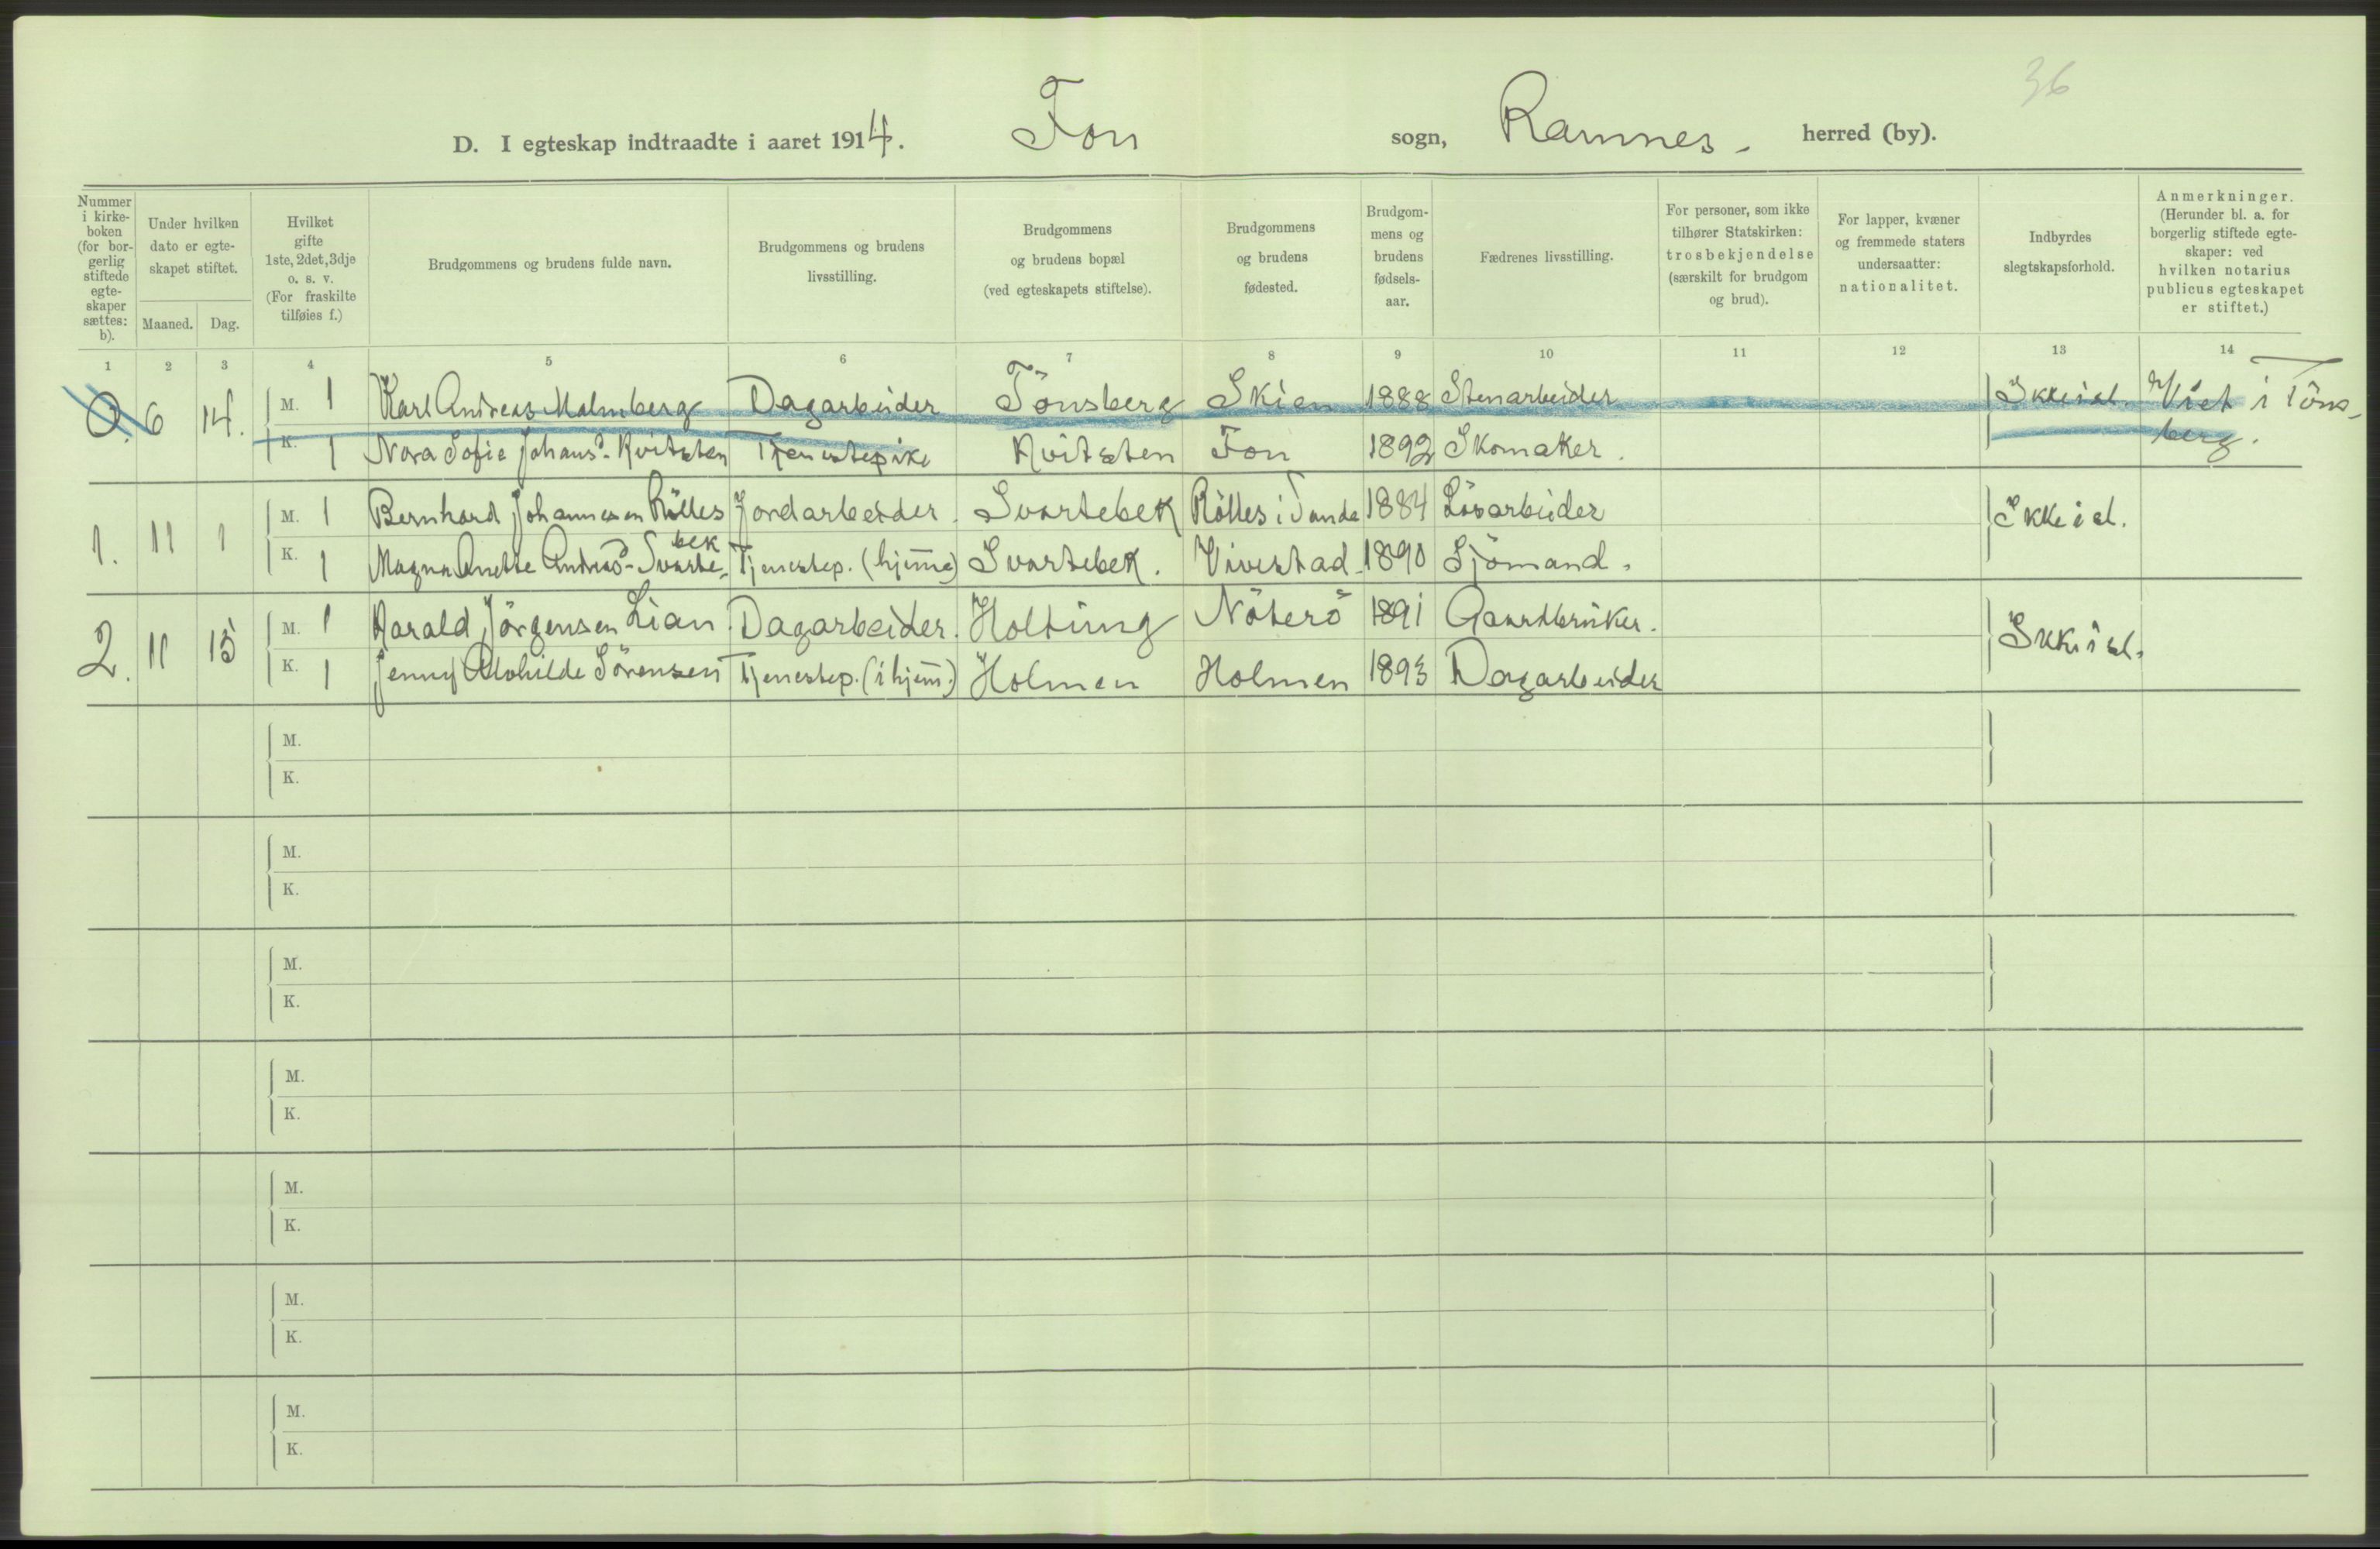 36
D. I egteskap indtraadte i aaret 1914. Fon sogn, Ramnes. herred (by).
Nummer i kirke- boken (for bor- gerlig stiftede egte- skaper sættes: b).
Under hvilken dato er egte- skapet stiftet.
Maaned. Dag.
Hvilket gifte 1ste, 2det, 3dje o. s. v. (For fraskilte tilføies f.)
Brudgommens og brudens fulde navn.
Brudgommens og brudens livsstilling.
Brudgommens og brudens bopæl (ved egteskapets stiftelse).
Brudgommens og brudens fødested.
Brudgom- mens og brudens fødsels- aar.
Fædrenes livsstilling.
For personer, som ikke tilhører Statskirken: trosbekjendelse (særskilt for brudgom og brud).
For lapper, kvæner og fremmede staters undersaatter: nationalitet.
Indbyrdes slegtskapsforhold.
Anmerkninger. (Herunder bl. a. for borgerlig stiftede egte- skaper: ved hvilken notarius publicus egteskapet er stiftet.)
1 2 3 4 5 6 7 8 9 10 11 12 13 14
0. 6 14. M. 1 Karl Andreas Malmberg Dagarbeider Tönsberg Skien 1888 Stenarbeider Ikke i sl. Viet i Töns-
K. 1 Nora Sofie Johansd. Kvitsten Tjenestepike Kvitsten Fon 1892 Skomaker. berg.
1. 11 1 M. 1 Bernhard Johannesen Rölles Jordarbeider. Svartebek Rölles i Sande 1884 Lösarbeider Ikke i sl.
K. 1 Magna Anette Andreasd. Svarte- bek Tjenestep. (hjemme) Svartebek. Vivestad. 1890 Sjömand.
2. 11 15 M. 1 Harald Jörgensen Lian Dagarbeider. Holtung Nöterö 1891 Gaardbruker. Ikke i sl.
K. 1 Jenny Alvhilde Sörensen Tjenestep. (i hjem.) Holmen Holmen 1893 Dagarbeider
M.
K.
M.
K.
M.
K.
M.
K.
M.
K.
M.
K.
M.
K.